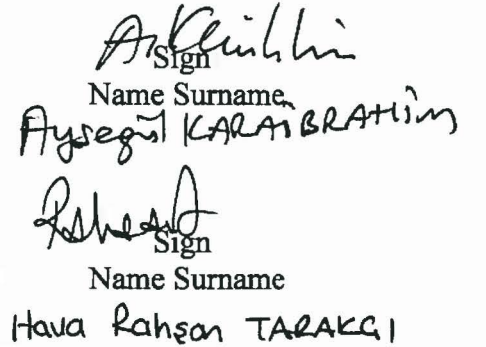 Sign
Name Surname
Ayşegül KARAİBRAHİM
Sign
Name Surname
Hava Rahşan TARAKÇI